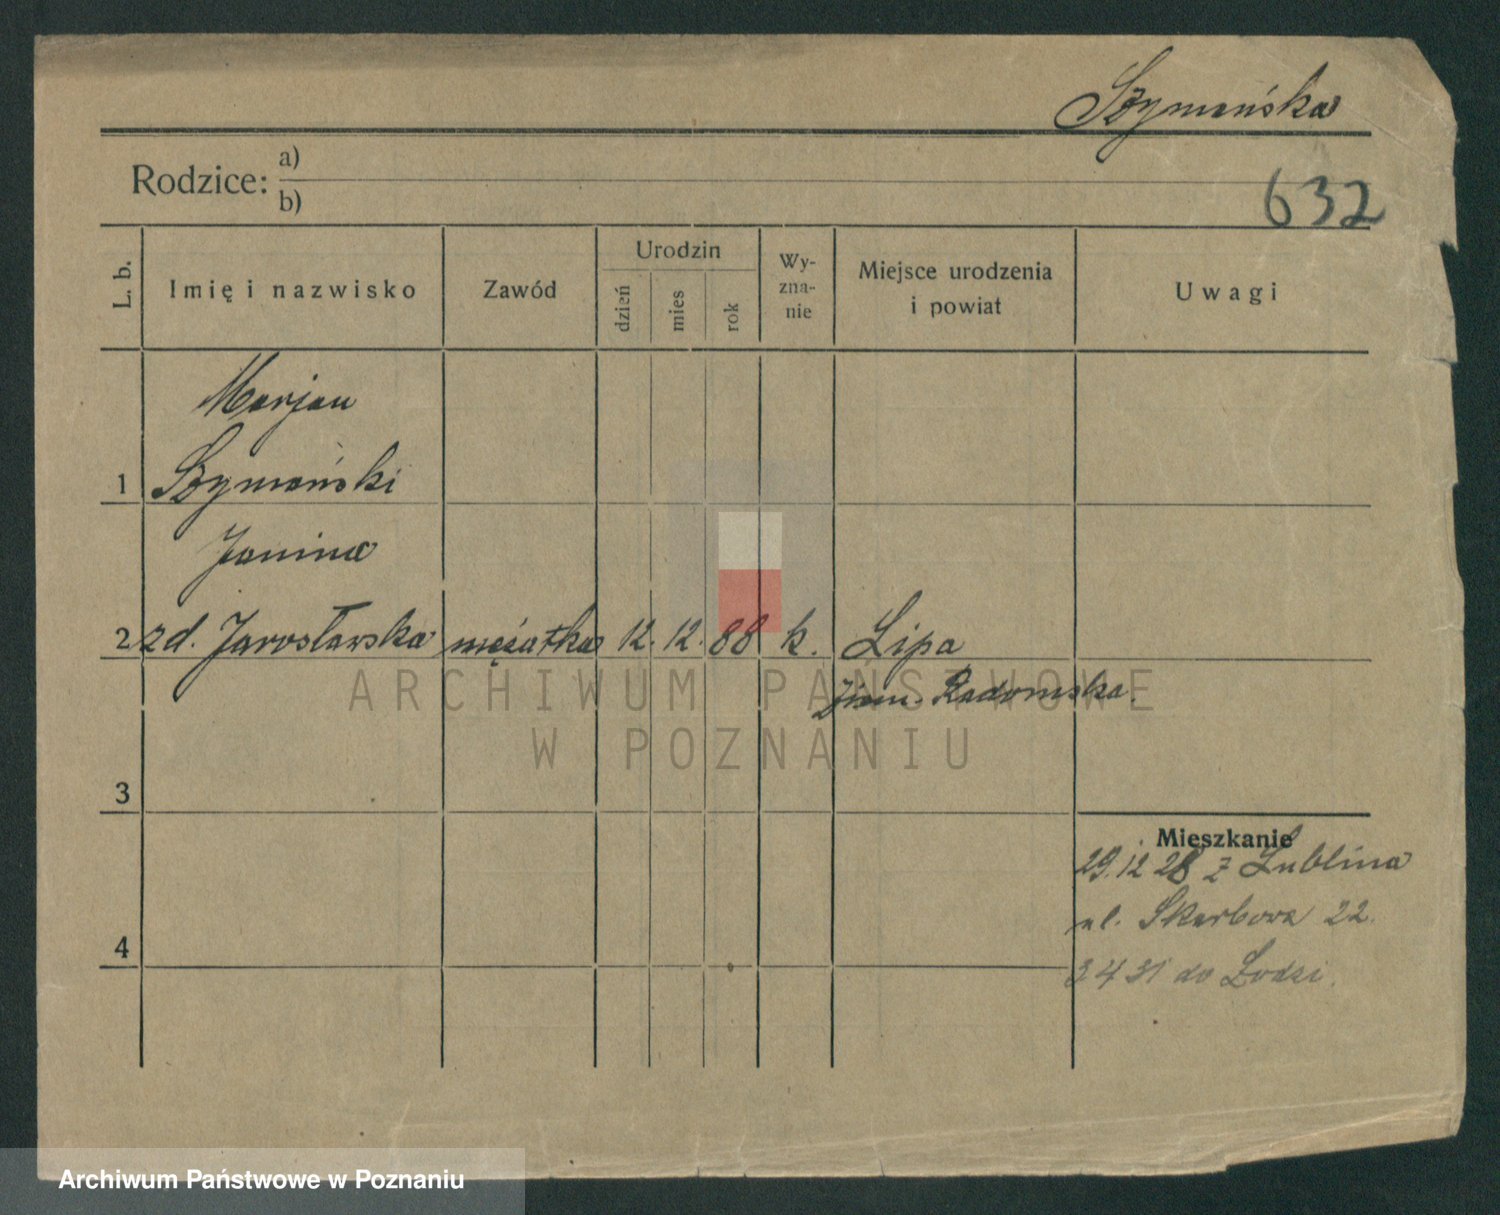 Szymańska
Rodzice: a)
b)
632
L. b.
Imię i nazwisko
Zawód
Urodzin
dzień
mies
rok
Wy-
zna-
nie
Miejsce urodzenia
i powiat
Uwagi
Marjan
1 Szymański
Janina
2 zd. Jarosławska mężatka 12. 12. 88 k. Lipa
Ziem. Radomska.
ARCHIWUM PAŃSTWOWE
W POZNANIU
3
Mieszkanie
29.12 28 z Lublina
ul. Skarbowa 22.
4
3 4 31 do Łodzi.
Archiwum Państwowe w Poznaniu